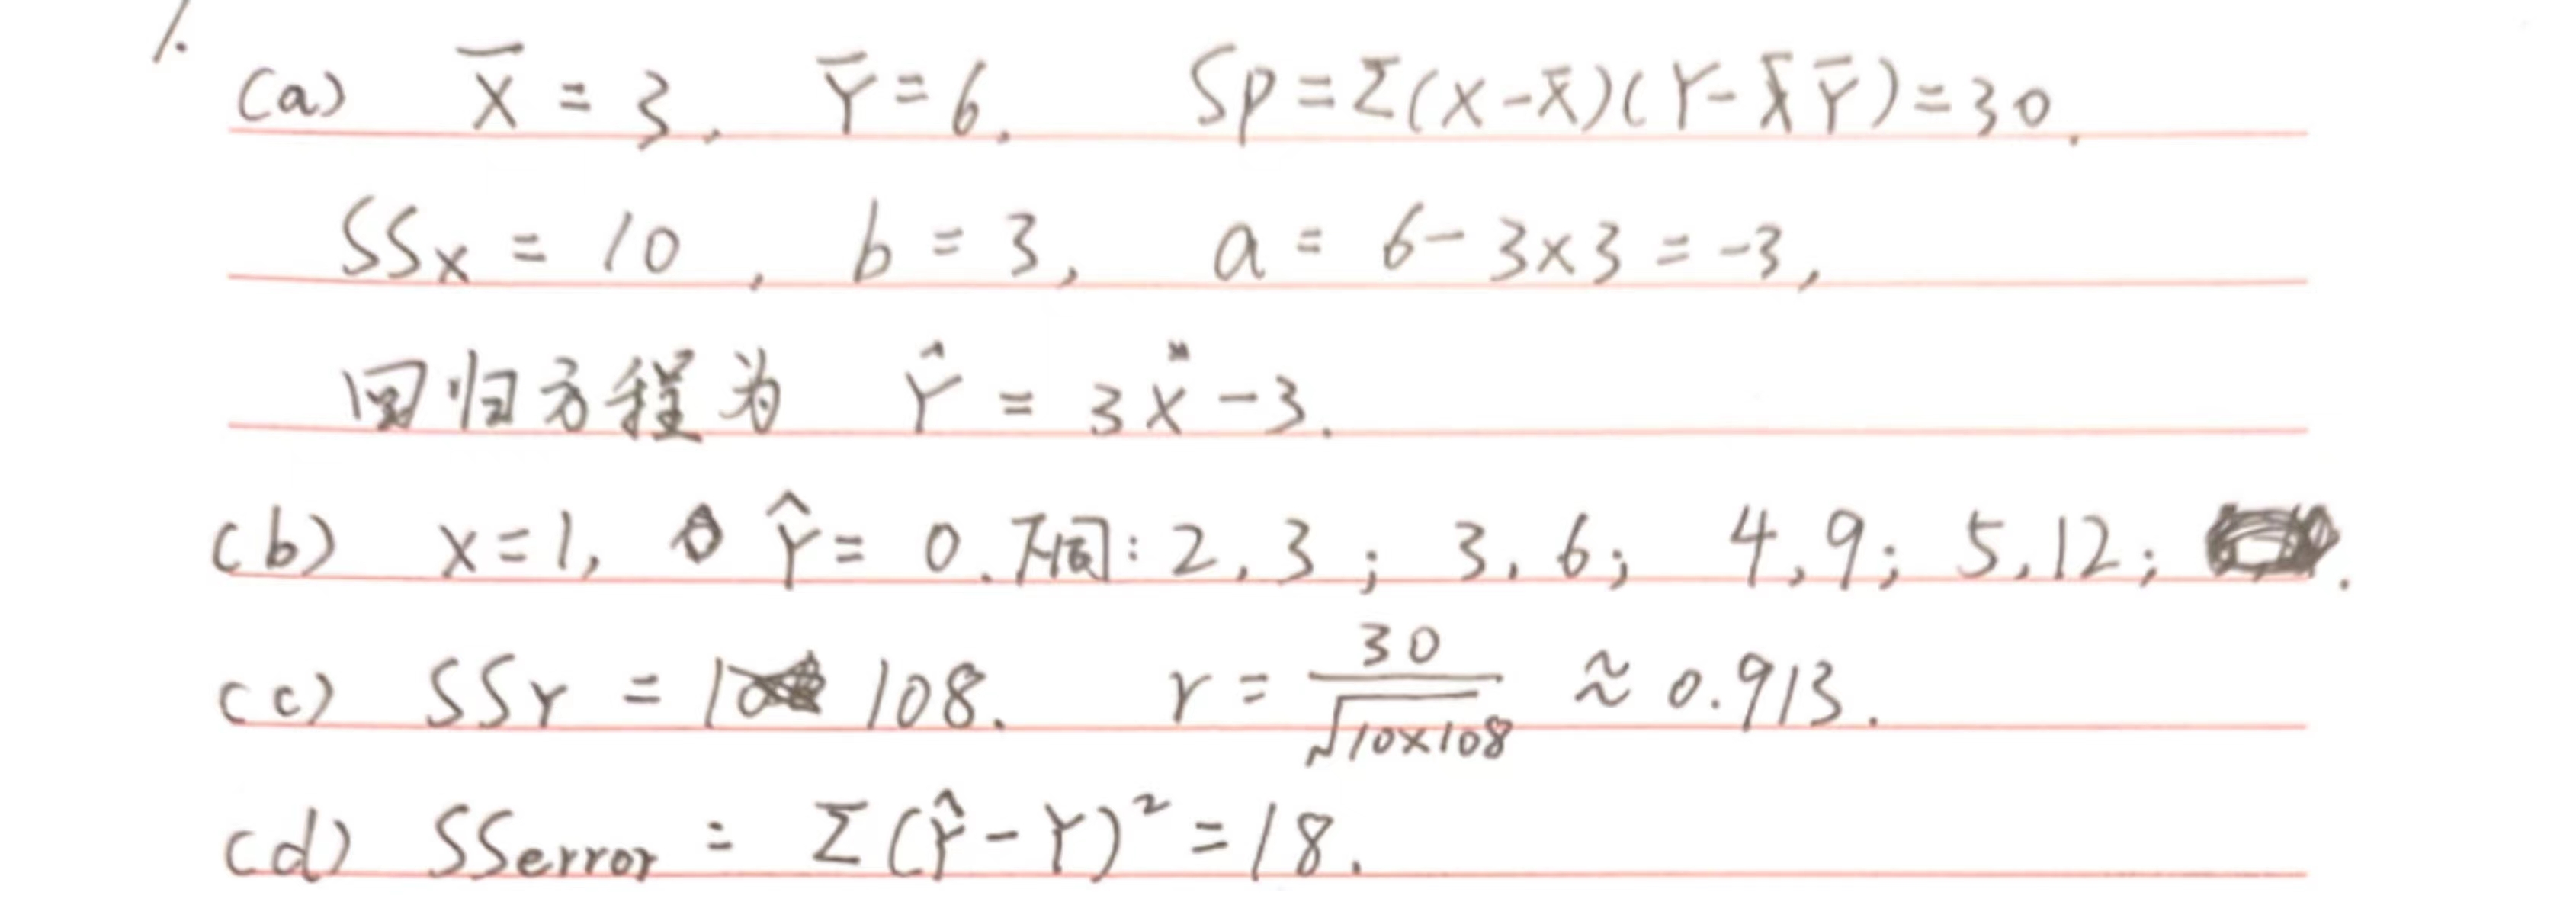 1.
(a) X̄ = 3, Ȳ = 6. Sp = Σ(X-X̄)(Y-Ȳ) = 30.
SSx = 10, b = 3, a = 6-3×3 = -3,
回归方程为 Ŷ = 3X-3.
(b) x=1, Ŷ= 0. 下同: 2,3; 3,6; 4,9; 5,12;
(c) SSY = 108. r = 30/√10×108 ≈ 0.913.
(d) SSerror = Σ(Ŷ-Y)² = 18.